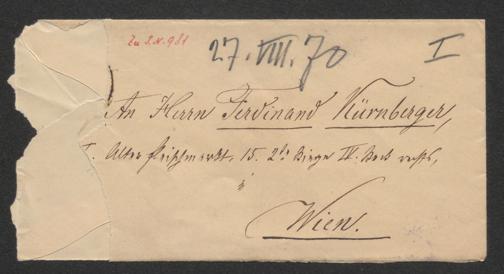 Zu I.N. 981
27. VIII. 70 I
An Herrn Ferdinand Kürnberger,
I. Alter Fleischmarkt, 15. 2te Stiege IV. Stock rechts,
in
Wien.